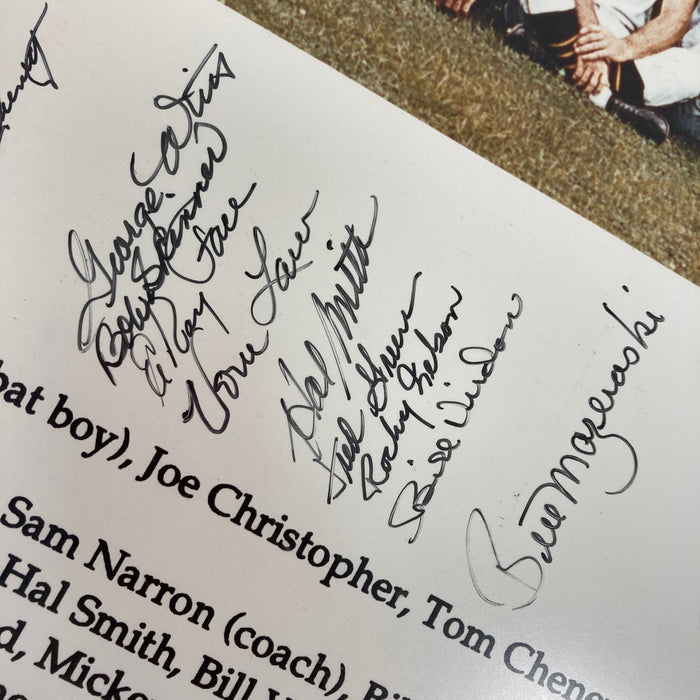 George Witt
Bob Skinner
El Roy Face
Vern Law
Hal Smith
Fred Green
Rocky Nelson
Bill Virdon
Bill Mazeroski
bat boy), Joe Christopher, Tom Chene
Sam Narron (coach), Bi
Hal Smith, Bill
d, Micke